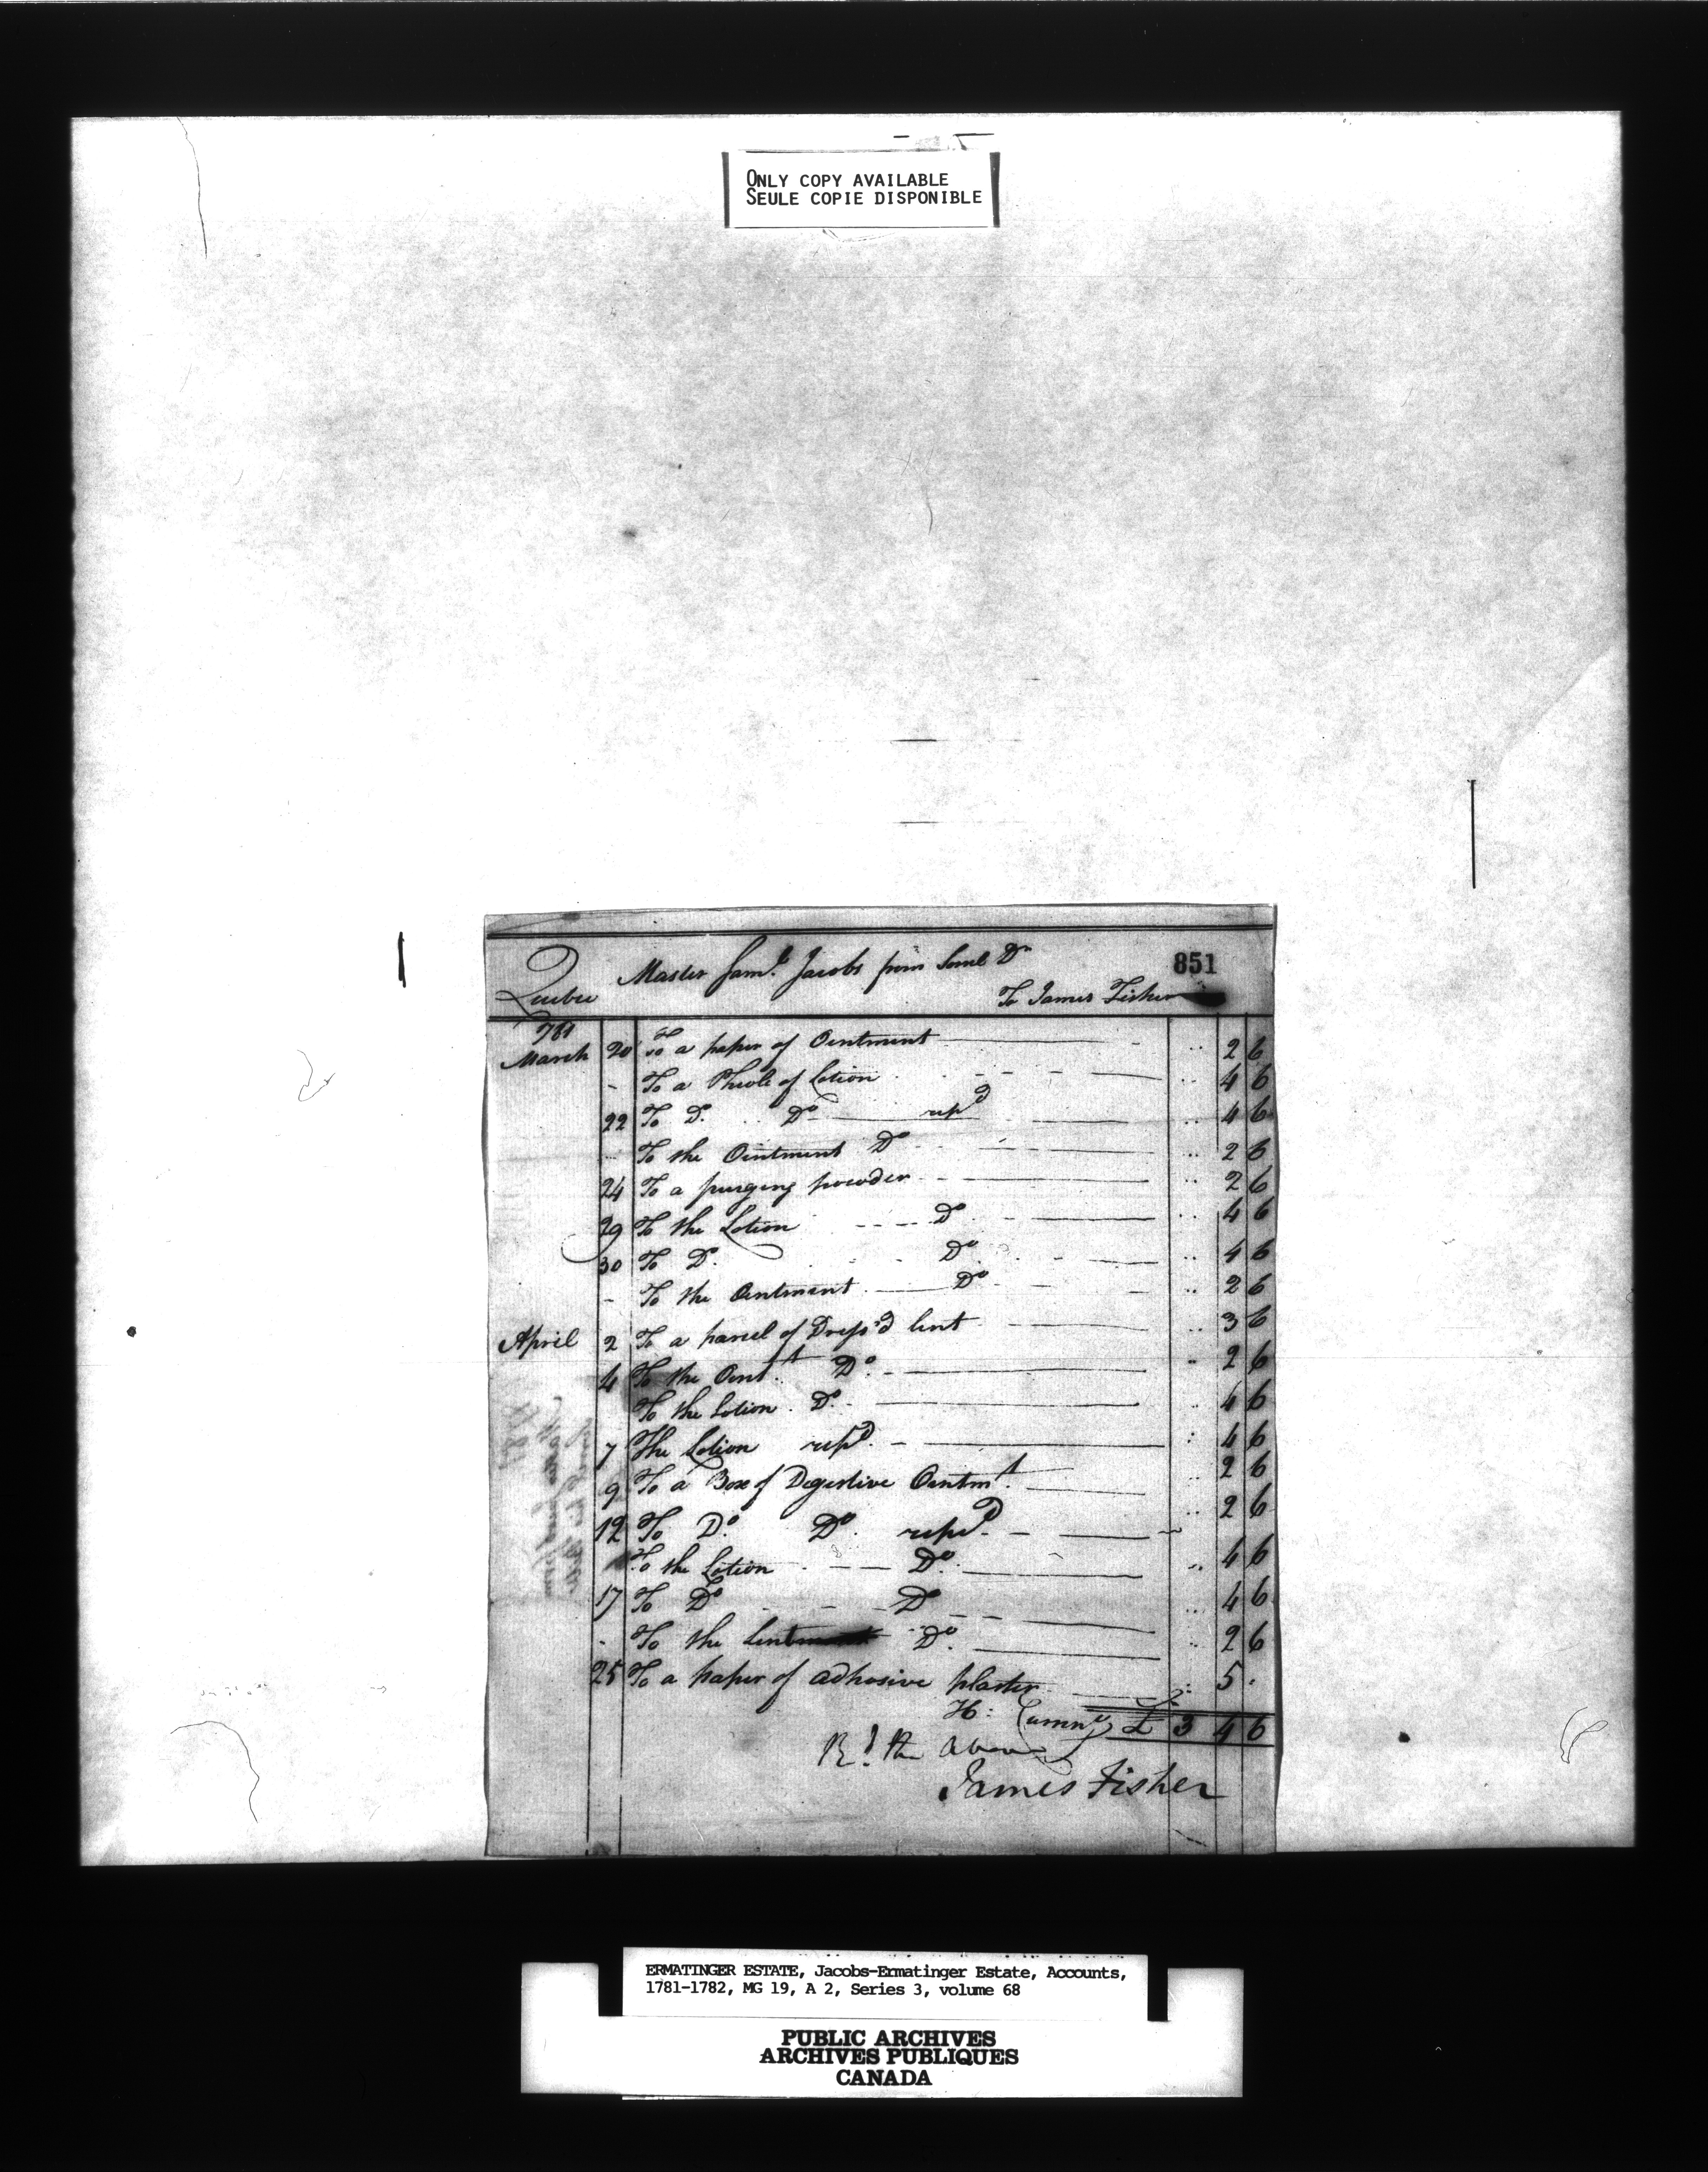 ONLY COPY AVAILABLE
SEULE COPIE DISPONIBLE
851
Quebec Master Saml Jacobs Dr
To James Fisher
1781
March 20 To a paper of Ointment .. 2 6
- To a Phiole of Lotion .. 4 6
22 To Do. Do repd .. 4 6
To the Ointment Do .. 2 6
24 To a purging powder .. 2 6
29 To the Lotion Do .. 4 6
30 To Do. Do .. 4 6
- To the Ointment Do .. 2 6
April 2 To a parcel of Dress'd lint .. 3 6
4 To the Oint.t Do. .. 2 6
To the Lotion Do. .. 4 6
7 The Lotion repd. : 4 6
9 To a Box of Digestive Ointm.t .. 2 6
12 To Do. Do. repd. .. 2 6
To the Lotion Do. .. 4 6
17 To Do Do .. 4 6
- To the Do. .. 2 6
25 To a paper of adhosive plaster : 5 .
H: £ 3 4 6
Rd the above
James Fisher
ERMATINGER ESTATE, Jacobs-Ermatinger Estate, Accounts,
1781-1782, MG 19, A 2, Series 3, volume 68
PUBLIC ARCHIVES
ARCHIVES PUBLIQUES
CANADA